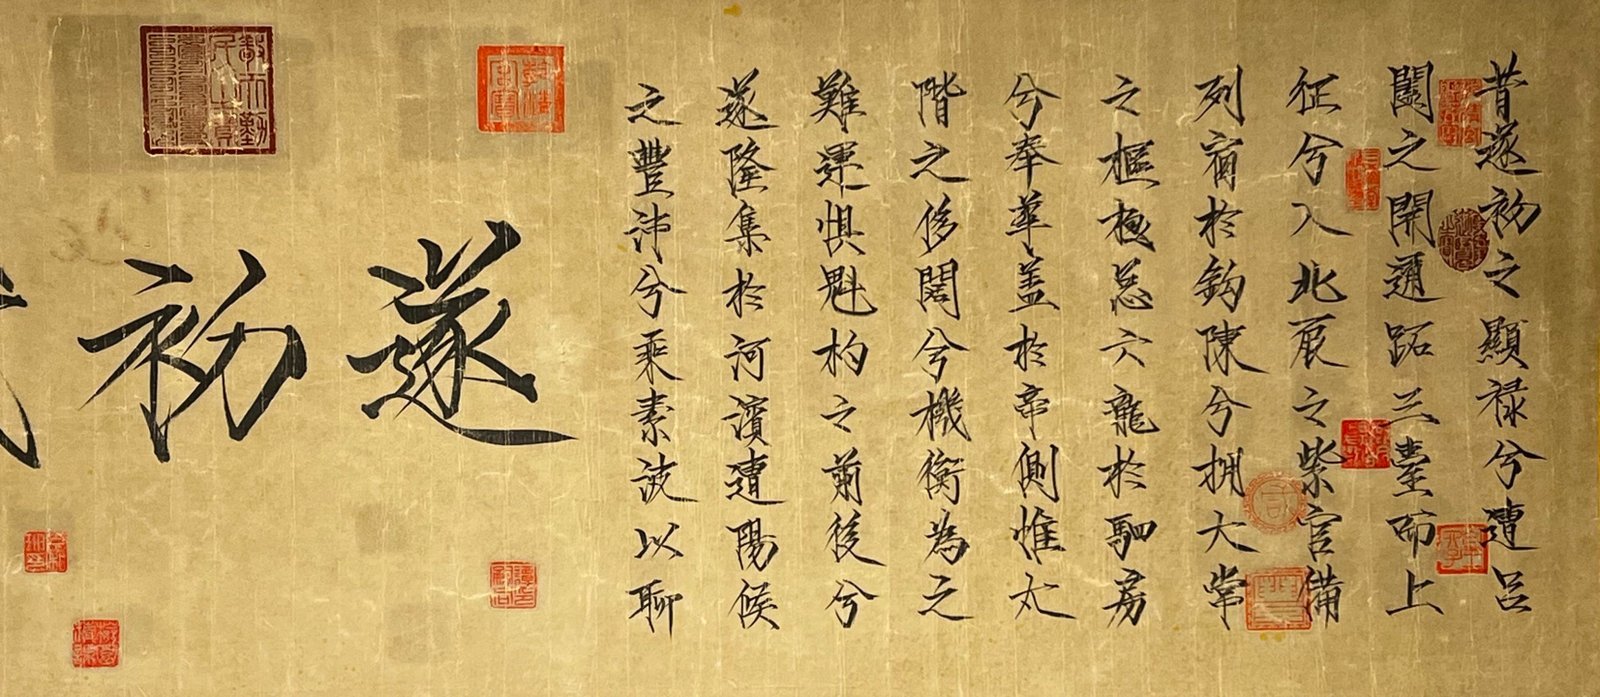 昔遂初之顯禄兮遭呂
之開通跖三臺而上
征兮入北辰之紫宮備
列宿於鈎陳兮拥大常
之樞極总六龍於駟房
兮奉華蓋於帝側惟太
階之侈闊兮機衡為之
難運惧魁杓之前後兮
遂隆集於河濱遭陽侯
之豐沛兮乘素波以聊
遂初